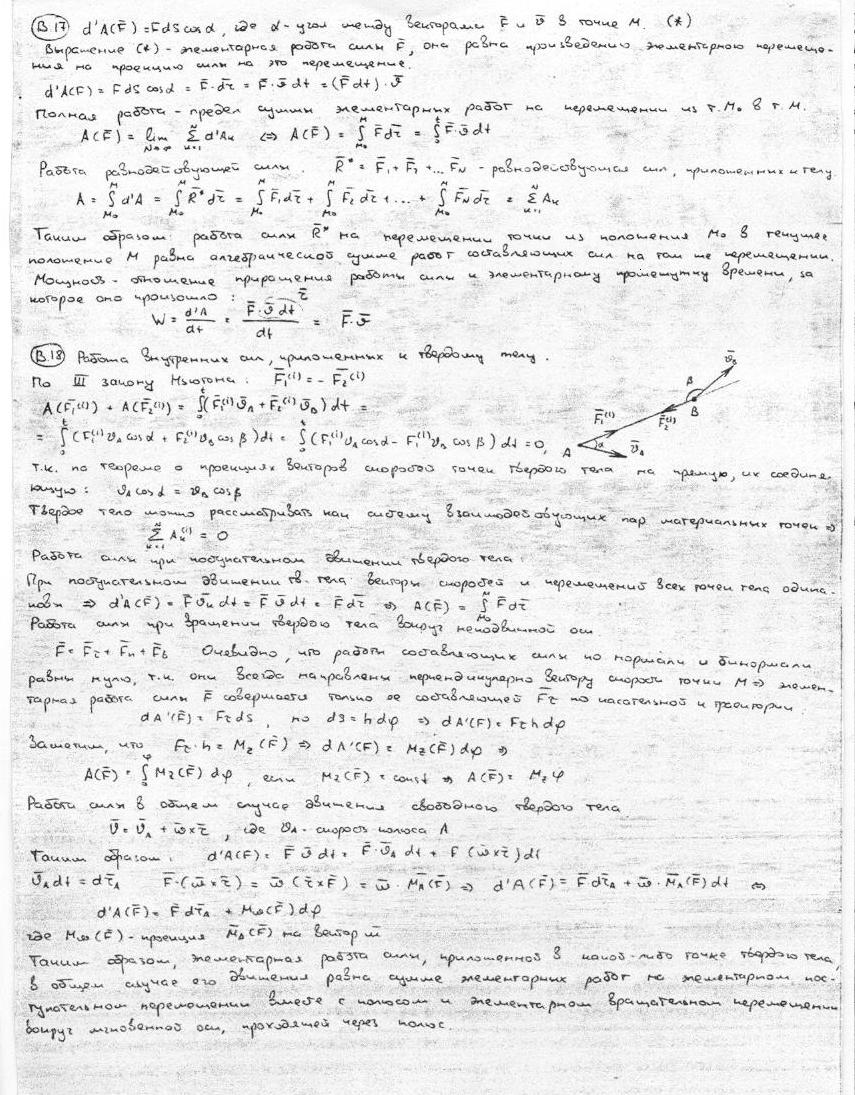 В.17) d'A(F̄) = F dS cos α, где α - угол между векторами F̄ и v̄ в точке М. (*)
Выражение (*) - элементарная работа силы F̄, она равна произведению элементарного перемеще-
ния на проекцию силы на это перемещение.
d'A(F̄) = F dS cos α = F̄·dr̄ = F̄·v̄ dt = (F̄ dt)·v̄
Полная работа - предел суммы элементарных работ на перемещении из т. М₀ в т. М.
A(F̄) = lim_{N→∞} Σ_{k=1}^{N} d'Aₖ ⇔ A(F̄) = ∫_{M₀}^{M} F̄ dr̄ = ∫_0^t F̄·v̄ dt
Работа равнодействующей силы. R̄* = F̄₁ + F̄₂ + ... F̄_N - равнодействующая сил, приложенных к телу.
A = ∫_{M₀}^{M} d'A = ∫_{M₀}^{M} R̄* dr̄ = ∫_{M₀}^{M} F̄₁ dr̄ + ∫_{M₀}^{M} F̄₂ dr̄ + ... + ∫_{M₀}^{M} F̄_N dr̄ = Σ_{k=1}^{N} Aₖ
Таким образом: работа силы R̄* на перемещении точки из положения М₀ в текущее
положение М равна алгебраической сумме работ составляющих сил на том же перемещении.
Мощность - отношение приращения работы силы к элементарному промежутку времени, за
которое оно произошло: r̄
W = d'A/dt = F̄·v̄ dt/dt = F̄·v̄
В.18) Работа внутренних сил, приложенных к твердому телу.
По III закону Ньютона: F̄₁⁽ⁱ⁾ = - F̄₂⁽ⁱ⁾
A(F̄₁⁽ⁱ⁾) + A(F̄₂⁽ⁱ⁾) = ∫_0^t (F̄₁⁽ⁱ⁾ v̄_A + F̄₂⁽ⁱ⁾ v̄_B) dt =
= ∫_0^t (F₁⁽ⁱ⁾ v_A cos α + F₂⁽ⁱ⁾ v_B cos β) dt = ∫_0^t (F₁⁽ⁱ⁾ v_A cos α - F₁⁽ⁱ⁾ v_B cos β) dt = 0,
A α v̄_A F̄₁⁽ⁱ⁾ F̄₂⁽ⁱ⁾ B β v̄_B
т.к. по теореме о проекциях векторов скоростей точек твердого тела на прямую, их соединя-
ющую: v_A cos α = v_B cos β
Твердое тело можно рассматривать как систему взаимодействующих пар материальных точек ⇒
Σ_{k=1}^{N} Aₖ⁽ⁱ⁾ = 0
Работа силы при поступательном движении твердого тела:
При поступательном движении тв. тела векторы скоростей и перемещений всех точек тела одина-
ковы ⇒ d'A(F̄) = F̄ v̄ₖ dt = F̄ v̄ dt = F̄ dr̄ ⇒ A(F̄) = ∫_{M₀}^{M} F̄ dr̄
Работа силы при вращении твердого тела вокруг неподвижной оси.
F̄ = F̄τ + F̄n + F̄b Очевидно, что работы составляющих силы по нормали и бинормали
равны нулю, т.к. они всегда направлены перпендикулярно вектору скорости точки М ⇒ элемен-
тарная работа силы F̄ совершается только ее составляющей F̄τ по касательной к траектории.
dA'(F̄) = Fτ dS, но dS = h dφ ⇒ dA'(F) = Fτ h dφ
Заметим, что Fτ·h = M_z(F̄) ⇒ dA'(F̄) = M_z(F̄) dφ ⇒
A(F̄) = ∫_0^φ M_z(F̄) dφ, если M_z(F̄) = const ⇒ A(F̄) = M_z φ
Работа силы в общем случае движения свободного твердого тела
v̄ = v̄_A + ω̄×r̄, где v_A - скорость полюса А
Таким образом: d'A(F̄) = F̄ v̄ dt = F̄·v̄_A dt + F (ω̄×r̄) dt
v̄_A dt = dr̄_A F̄·(ω̄×r̄) = ω̄ (r̄×F̄) = ω̄·M̄_A(F̄) ⇒ d'A(F̄) = F̄ dr̄_A + ω̄·M̄_A(F̄) dt ⇔
d'A(F̄) = F̄ dr̄_A + M_ω(F̄) dφ
где M_ω(F̄) - проекция M̄_A(F̄) на вектор ω̄
Таким образом, элементарная работа силы, приложенной в какой-либо точке твердого тела,
в общем случае его движения равна сумме элементарных работ на элементарном пос-
тупательном перемещении вместе с полюсом и элементарном вращательном перемещении
вокруг мгновенной оси, проходящей через полюс.